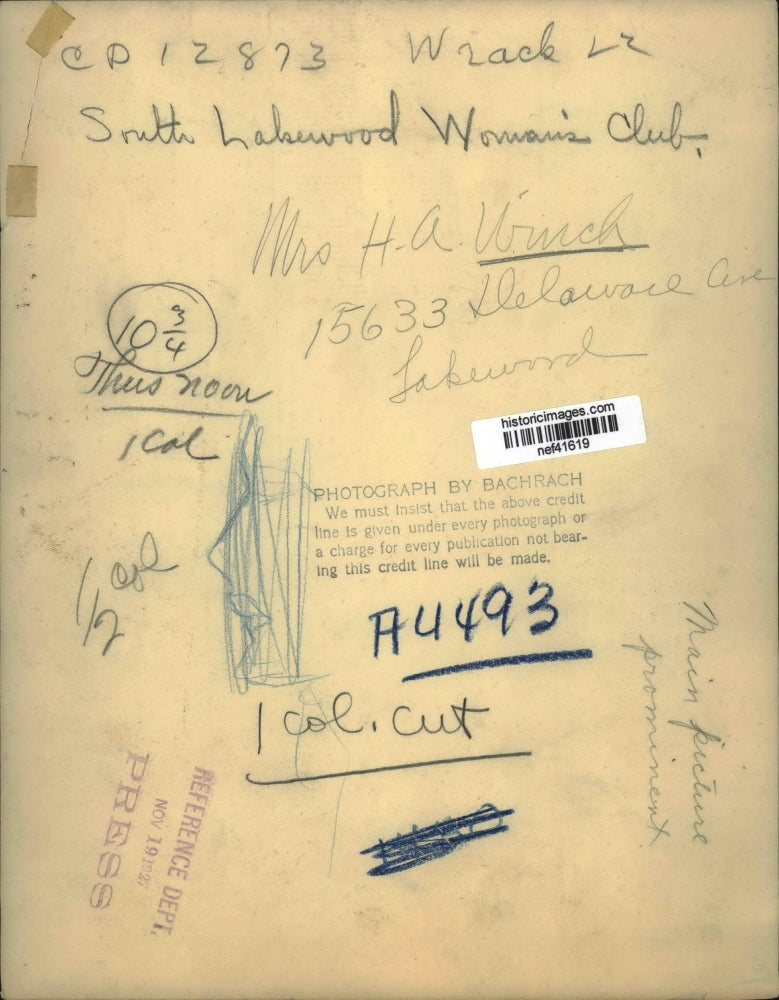 CD 12873 Wrack
South Lakewood Woman's Club.
Mrs H. A. Winch
15633 Delaware Ave
Lakewood
10 3/4
Thurs noon
1 Col
historicimages.com
nef41619
PHOTOGRAPH BY BACHRACH
We must insist that the above credit
line is given under every photograph or
a charge for every publication not bear-
ing this credit line will be made.
1/2 col
A4493
1 col. cut
Main picture
prominent
REFERENCE DEPT.
NOV 19 1927
PRESS